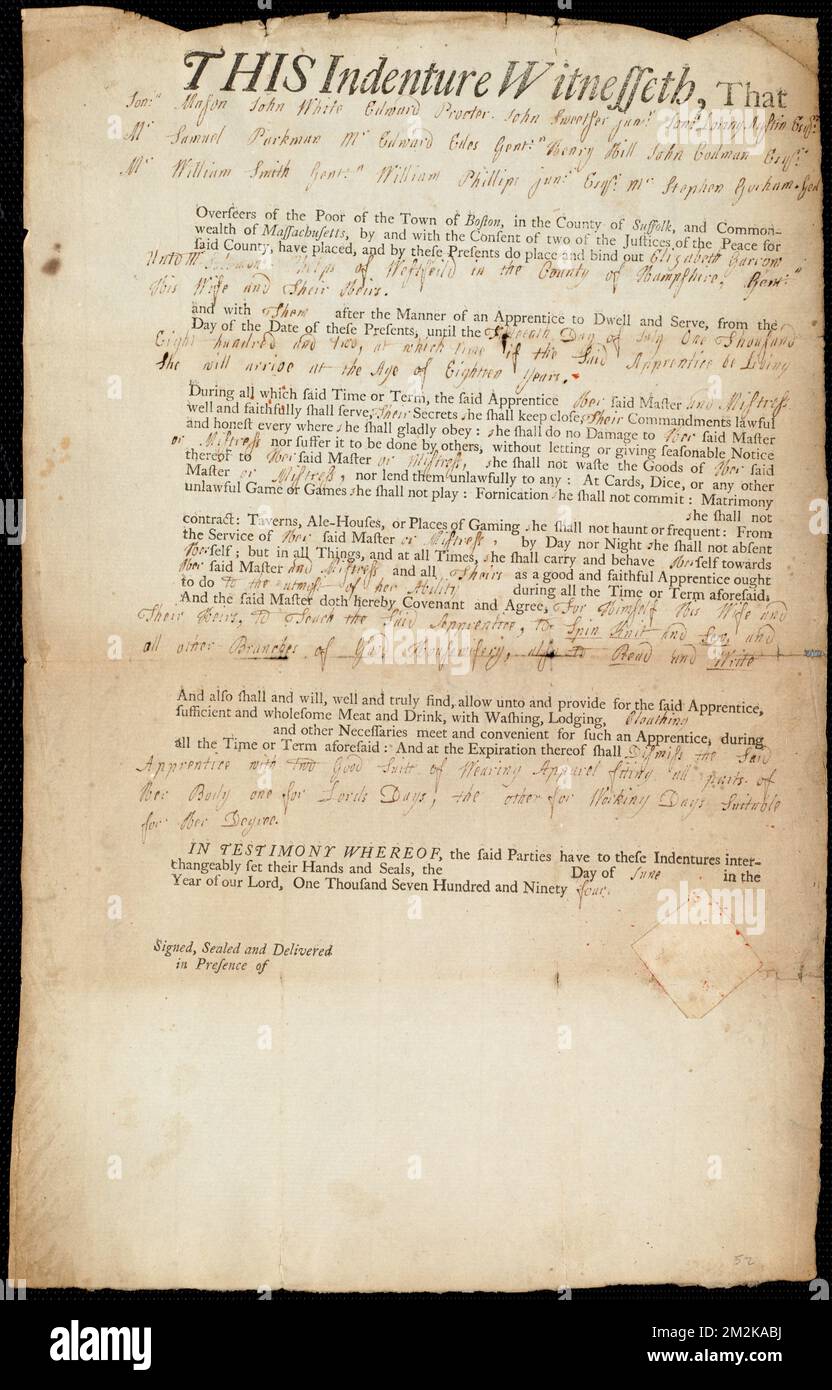 THIS Indenture Witnesseth, That
Jonᵃ Mason John White Edward Procter. John Sweetser junʳ Jonᵃ Loring Austin Esqʳˢ
Mʳ Samuel Parkman Mʳ Edward Edes Gentⁿ Henry Hill John Codman Esqʳˢ
Mʳ William Smith Gentⁿ William Phillips junʳ Esqʳ Mʳ Stephen Gorham. Gent
Overseers of the Poor of the Town of Boston, in the County of Suffolk, and Common-
wealth of Massachusetts, by and with the Consent of two of the Justices of the Peace for
said County, have placed, and by these Presents do place and bind out Elizabeth Garrow
Unto Mʳ Phelps of Westfeild in the County of Hampshire, Gentⁿ
His Wife and Their Heirs.
and with Them after the Manner of an Apprentice to Dwell and Serve, from the
Day of the Date of these Presents, until the Day of July One Thousand
Eight hundred and two, at which time if the Said Apprentice be Living
She will arrive at the Age of Eighteen Years.
During all which said Time or Term, the said Apprentice Her said Master and Mistress
well and faithfully shall serve, Their Secrets she shall keep close, Their Commandments lawful
and honest every where she shall gladly obey: she shall do no Damage to Her said Master
or Mistress nor suffer it to be done by others, without letting or giving seasonable Notice
thereof to Her said Master or Mistress, she shall not waste the Goods of Her said
Master or Mistress, nor lend them unlawfully to any: At Cards, Dice, or any other
unlawful Game or Games she shall not play: Fornication she shall not commit: Matrimony
she shall not
contract: Taverns, Ale-Houses, or Places of Gaming she shall not haunt or frequent: From
the Service of Her said Master or Mistress, by Day nor Night she shall not absent
Herself; but in all Things, and at all Times, she shall carry and behave Herself towards
Her said Master and Mistress and all Theirs as a good and faithful Apprentice ought
to do to the utmost of her Ability during all the Time or Term aforesaid.
And the said Master doth hereby Covenant and Agree, For Himself His Wife and
Their Heirs, to Teach the Said Apprentice, to Spin Knit and Sew and
all other Branches of Good Housewifery, also to Read and Write
And also shall and will, well and truly find, allow unto and provide for the said Apprentice,
sufficient and wholesome Meat and Drink, with Washing, Lodging, Cloathing
and other Necessaries meet and convenient for such an Apprentice, during
all the Time or Term aforesaid: And at the Expiration thereof shall Dismiss the Said
Apprentice with two Good Suits of Wearing Apparel fitting all parts of
Her Body one for Lords Days, the other for Working Days Suitable
for Her Degree.
IN TESTIMONY WHEREOF, the said Parties have to these Indentures inter-
changeably set their Hands and Seals, the Day of June in the
Year of our Lord, One Thousand Seven Hundred and Ninety four.
Signed, Sealed and Delivered
in Presence of
52
alamy
Image ID: 2M2KABJ
www.alamy.com